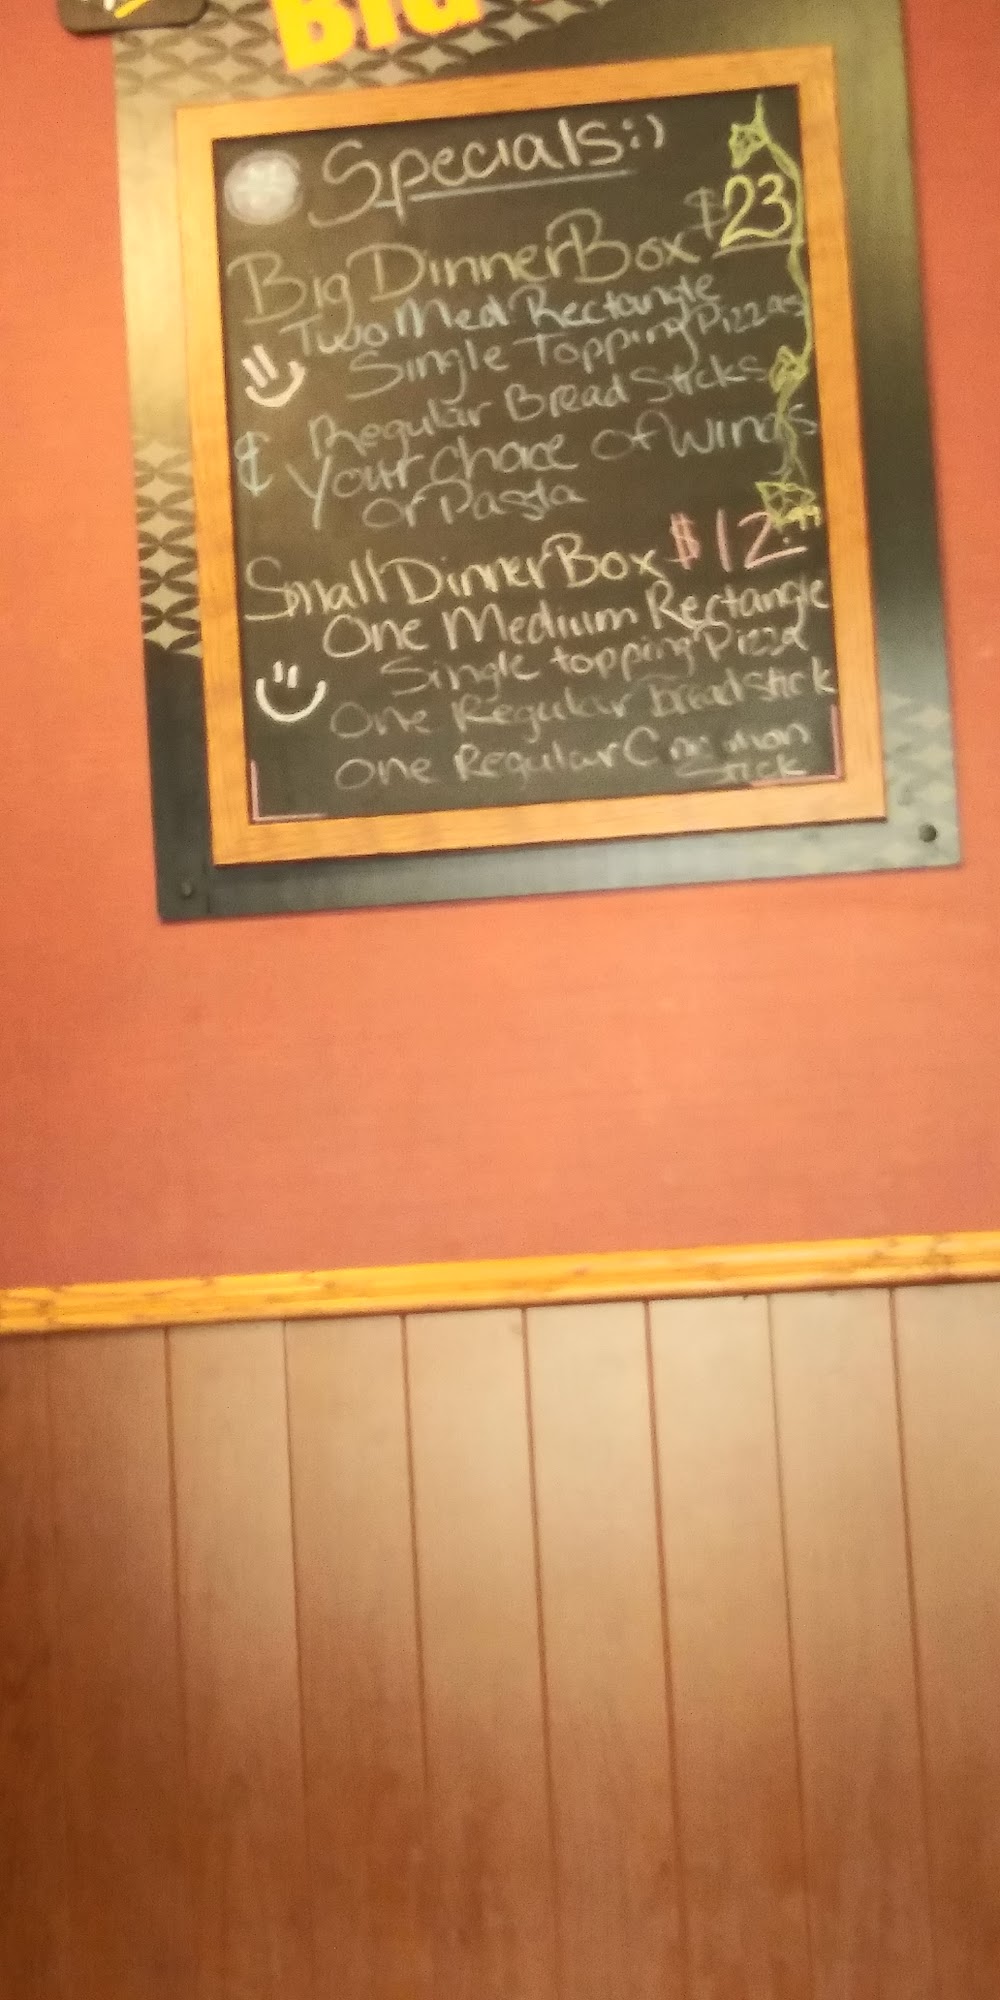 Big
Specials:)
Big Dinner Box $23
Two Med Rectangle
Single Topping Pizzas
Regular Bread Sticks
¢ Your choice of Wings
or Pasta
Small Dinner Box $12.99
One Medium Rectangle
Single topping Pizza
One Regular breadstick
One Regular Cinnamon
Stick